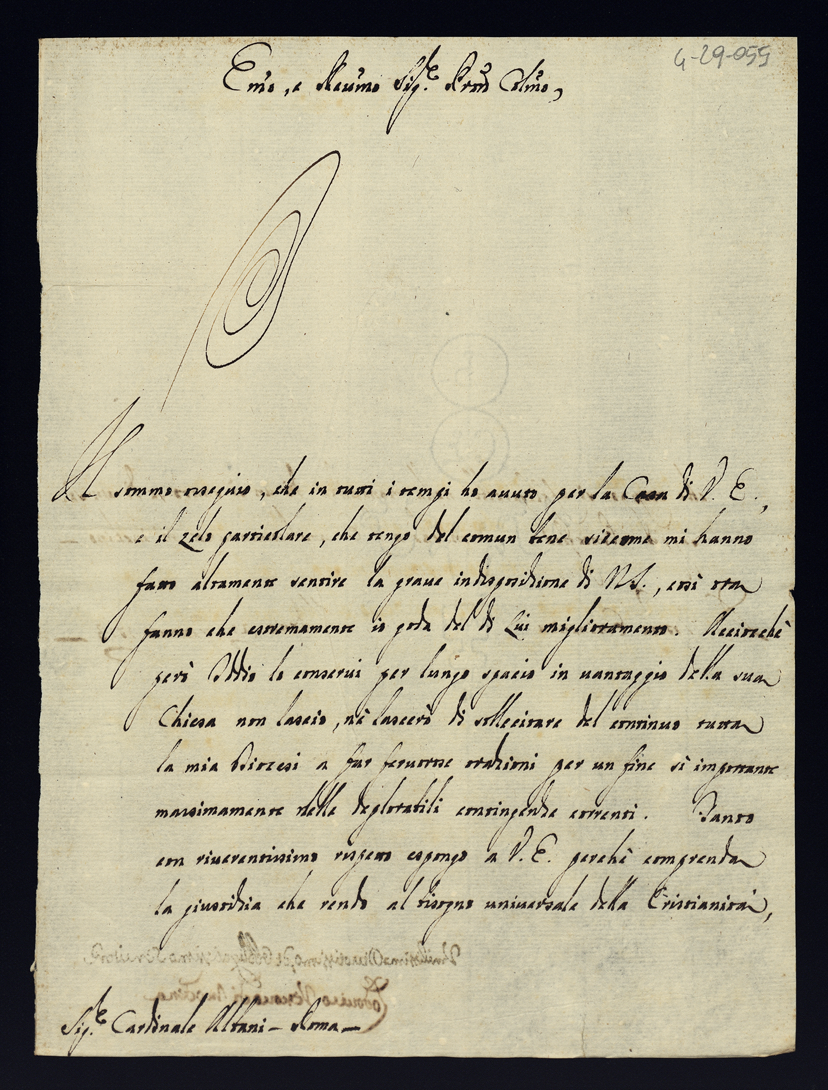 4-29-055
Emo, e Reumo Sig.re Pron Colmo,
Il sommo ossequio, che in tutti i tempi ho auuto per la Casa di V. E.,
e il zelo particolare, che tengo del comun bene siccome mi hanno
fatto altamente sentire la graue indisposizione di N.S., così ora
fanno che estremamente io goda del di Lui miglioramento. Accioche
però Iddio lo conserui per lungo spacio in uantaggio della sua
Chiesa non lascio, nè lascerò di sollecitare del continuo tutta
la mia Diocesi a far feruorose orazioni per un fine sì importante
massimamente nelle deplorabili contingenze correnti. Tanto
con riuerentissimo rispetto espongo a V. E. perchè comprenda
la giustizia che rendo al bisogno uniuersale della Cristianità,
Sig.re Cardinale Albani – Roma –